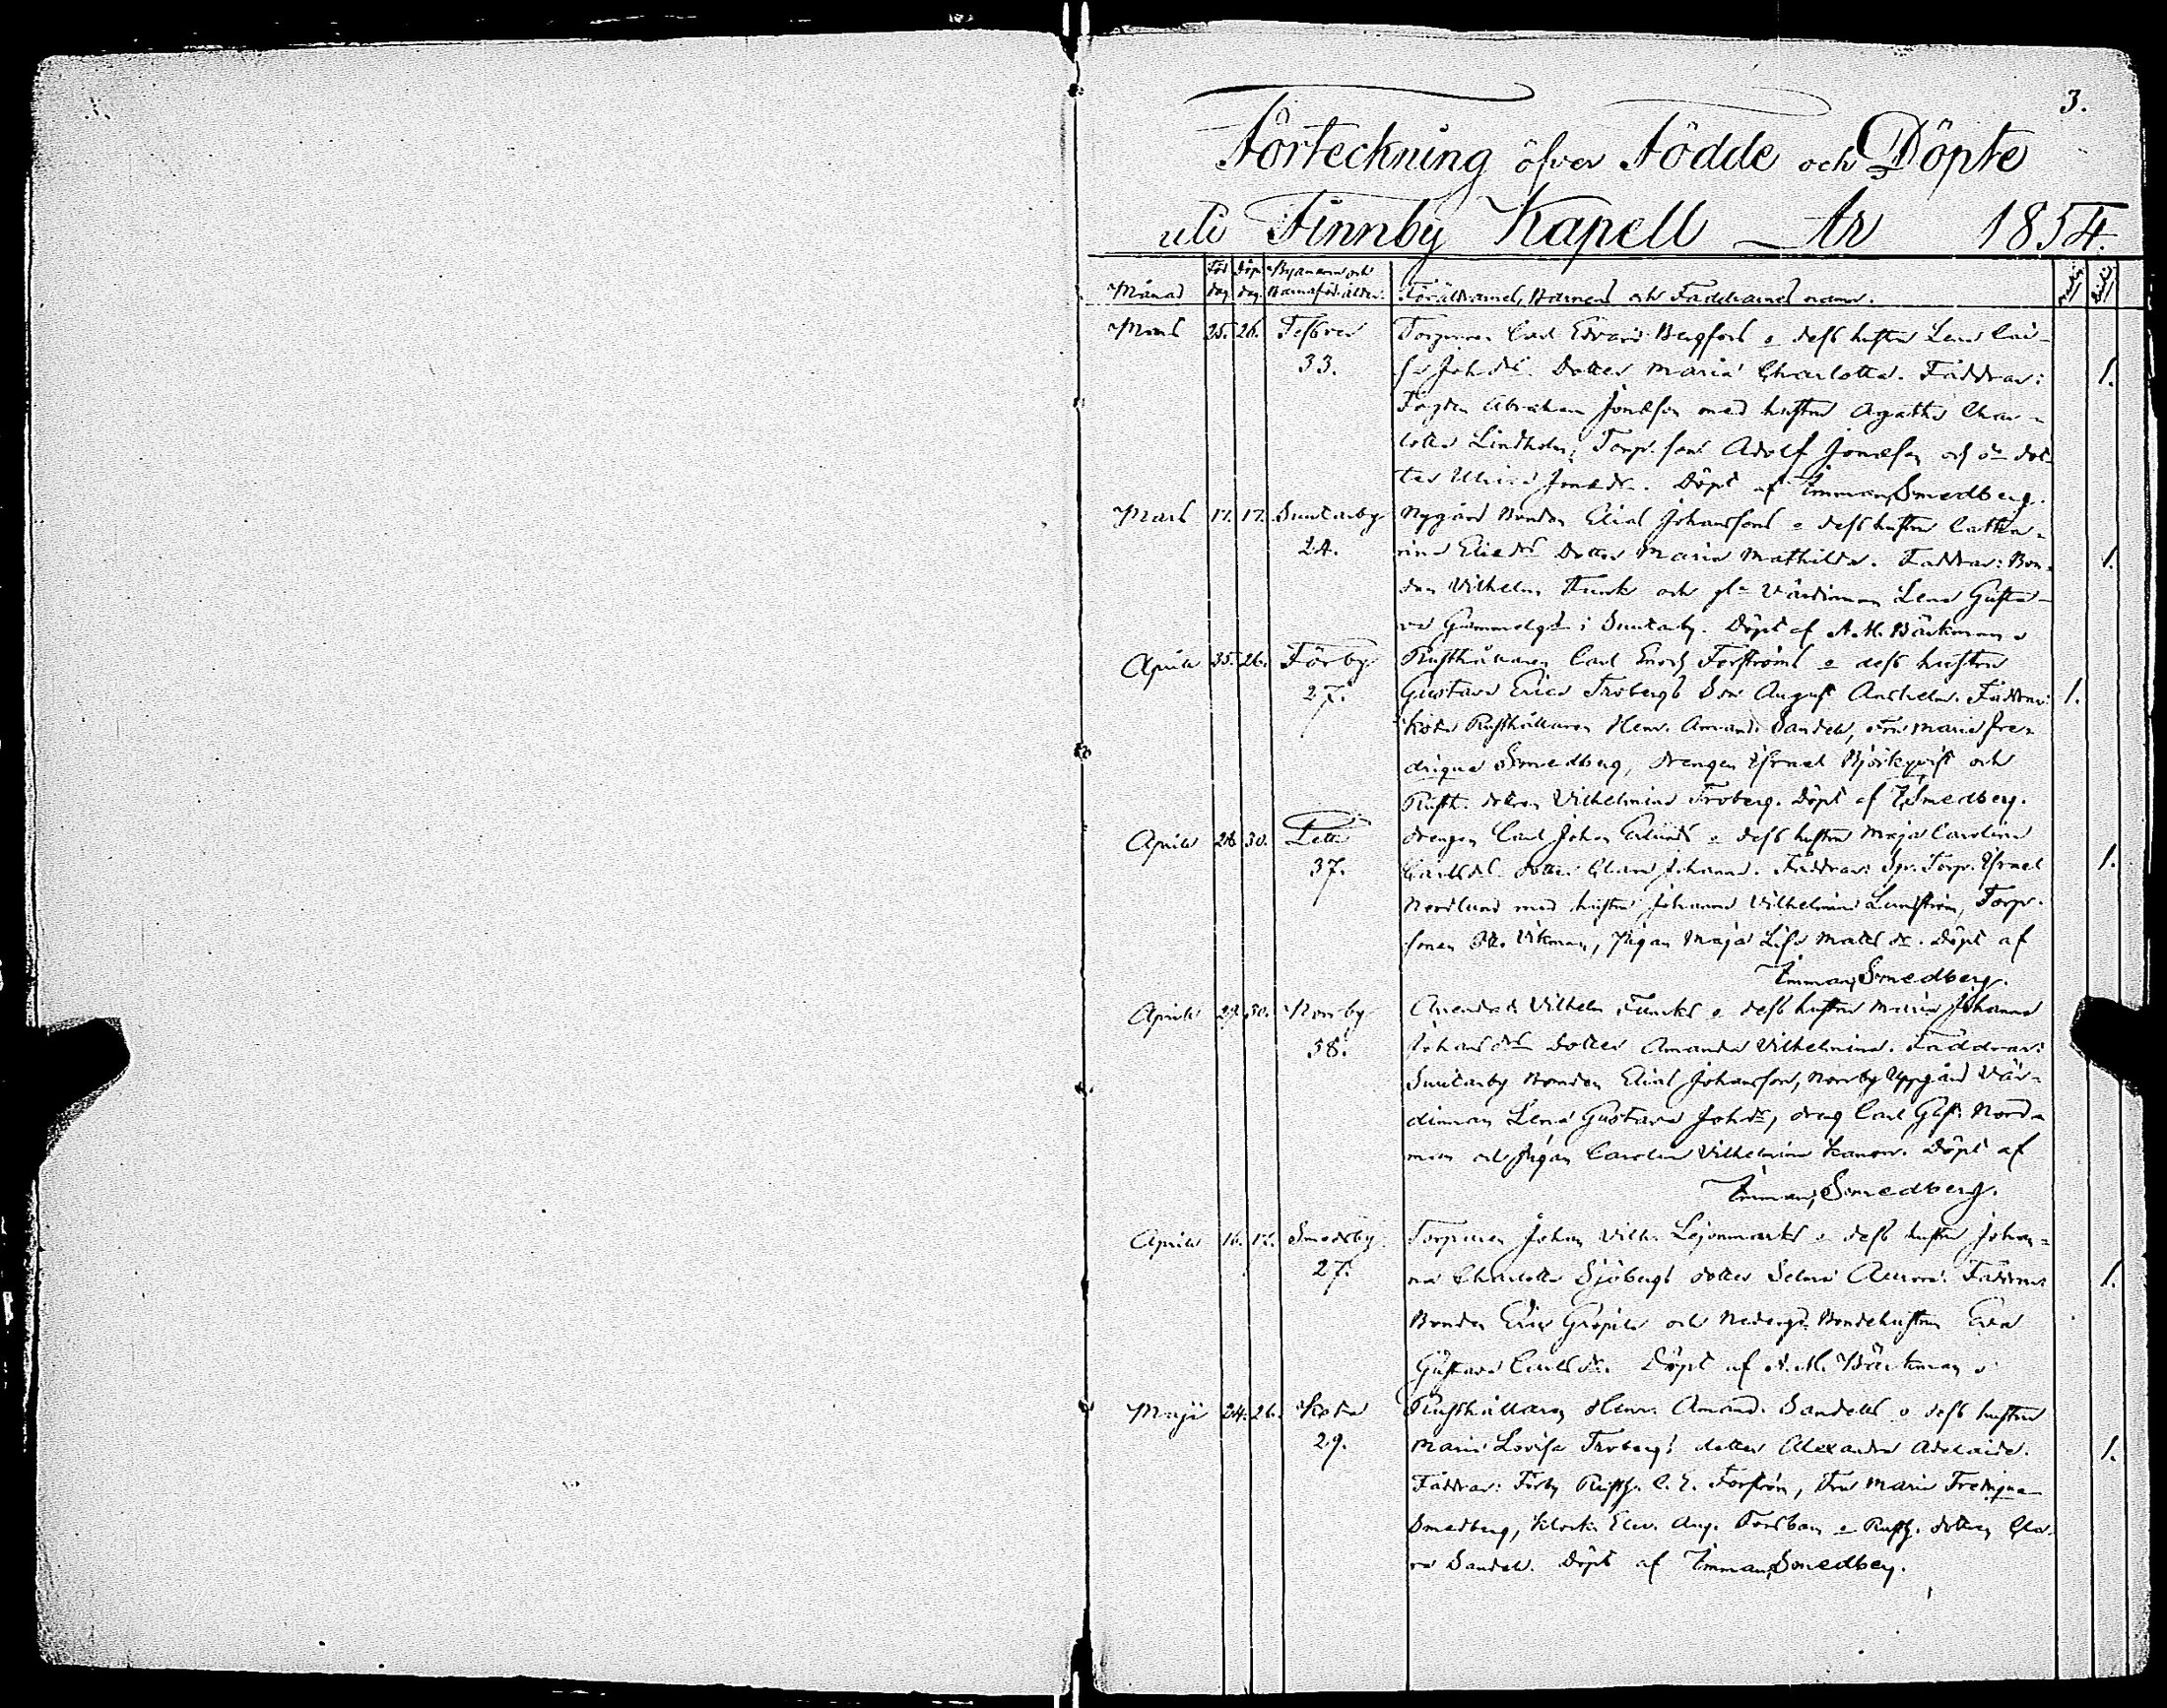 3.
Förteckning öfver Födde och Döpte
uti Finnby Kapell År 1854.
Månad Föd. dag Döp. dag Bynamn och Barnaföd. ålder. Föräldrarnes, Barnens och Faddrarnes namn.
Mars 25. 26. Tessver Torparen Carl Edvard Bergfors o dess hustru Lena Cai-
33. sa Joh. dr. Dotter Maria Charlotta. Faddrar: 1.
Fogden Abraham Jonasson med hustru Agatha Char-
lotta Lindholm, Torp. son Adolf Jonasson och dot-
ter Ulrica Jonasdr. Döpt af Imman. Smedberg.
Mars 17. 17. Suutarby Nygård Bonden Elias Johanssons o dess hustru Catha-
24. rina Eliedr Dotter Maria Mathilda. Faddrar: Bon- 1.
den Vilhelm Funk och Värdinnan Lena Gusta-
va i Suutarby. Döpt af A. M. Bäckman
April 25. 26. Förby Rusthållaren Carl Enoch Forströms o dess hustru
27. Gustava Erica Frobergs Son August Anshelm. Faddrar: 1.
Rusthållaren Henr. Amand. Sandell, Fru Maria Fre-
drique Smedberg, drengen Israel Björkqvist och
Rusth. dottren Vilhelmina Froberg. Döpt af I. Smedberg.
April 28. 30. Pettu drengen Carl Johan o dess hustru Maja Carolina
37. Carlsdr. dotter Clara Johanna. Faddrar: Torp. Israel 1.
Nordlund med hustru Johanna Vilhelmina Lundström, Torp.
sonen Otto Vikman, Pigan Maja Lisa Matts dr. Döpt af
Imman. Smedberg.
April 29. 30. Norrby Arendat. Vilhelm Funcks o dess hustru Maria Johanna
38. Johans dr dotter Amanda Vilhelmina. Faddrar:
Suutarby Bonden Elias Johansson, Norrby Uppgård Vär-
dinnan Lena Gustava Joh dr, dreng Carl Gust. Nord-
man och Pigan Carolina Vilhelmina. Döpt af
Imman. Smedberg.
April 16. 17. Smedsby Torparen Johan Vilh. Lejonmarks o dess hustru Johan-
27. na Charlotta Sjöbergs dotter Selma Aurora. Faddrar: 1.
Bonden Eric och Nedergd. Bondehustrun Eva
Gustava Carlsdr. Döpt af A. M. Bäckman
Maji 24. 26. Rusthållaren Henr. Amand. Sandells o dess hustru
29. Maria Lovisa Frobergs dotter Alexandra Adelaide. 1.
Faddrar: Förby Rusth. C. E. Forström, Fru Maria Fredrique
Smedberg, Klock. Elev. Aug. Forsbom o Rusth. dottren Cla-
ra Sandell. Döpt af Imman. Smedberg.